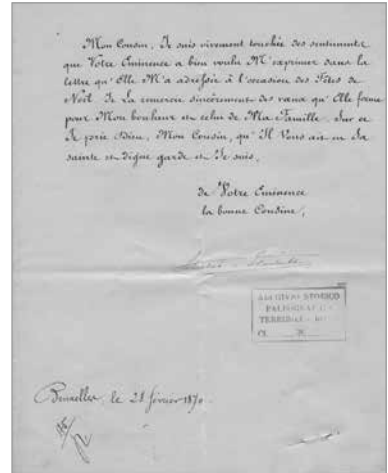 Mon Cousin, Je suis vivement touchée des sentiments
que Votre Eminence a bien voulu M'exprimer dans la
lettre qu'Elle M'a adressée à l'occasion des Fêtes de
Noël. Je La remercie sincèrement des vœux qu'Elle forme
pour Mon bonheur et celui de Ma Famille. Sur ce
Je prie Dieu, Mon Cousin, qu'Il Vous ait en Sa
sainte et digne garde et Je suis,
de Votre Eminence
la bonne Cousine,
ARCHIVIO STORICO
Bruxelles, le 28 février 1870.